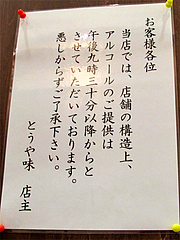 お客様各位
当店では、店舗の構造上、
アルコールのご提供は
午後九時三十分以降からと
させていただいております。
悪しからずご了承下さい。
とうや味 店主